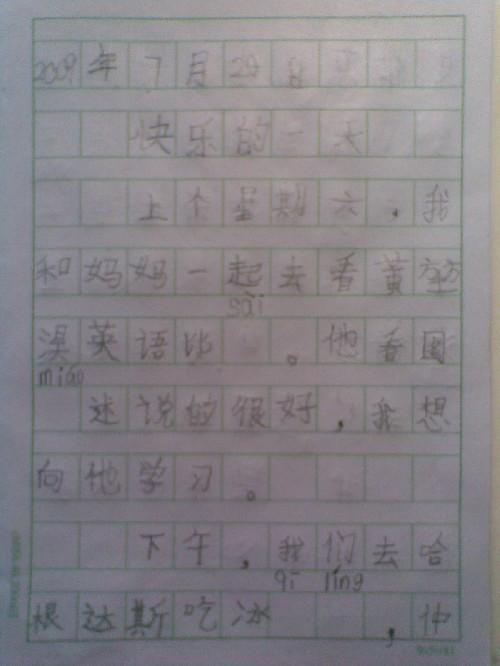 2009年7月29日
快乐的一天
上个星期六,我
和妈妈一起去看黄堃
sài
英语比 。他看图
miáo
述说的很好,我想
向他学习。
下午,我们去哈
qí líng
根达斯吃冰 ,仲